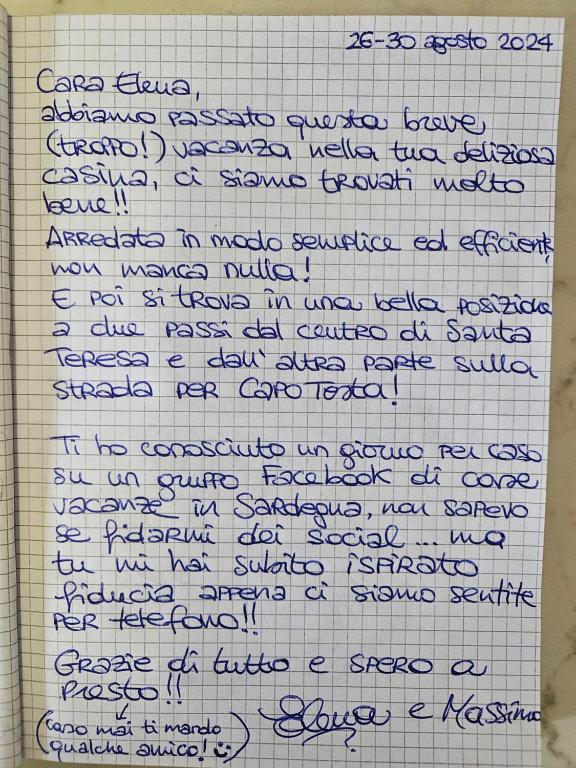 26-30 agosto 2024
Cara Elena,
abbiamo passato questa breve
(troppo!) vacanza nella tua deliziosa
casina, ci siamo trovati molto
bene!!
Arredata in modo semplice ed efficiente,
non manca nulla!
E poi si trova in una bella posizione
a due passi dal centro di Santa
Teresa e dall'altra parte sulla
strada per Capo Testa!
Ti ho conosciuto un giorno per caso
su un gruppo Facebook di case
vacanze in Sardegna, non sapevo
se fidarmi dei social... ma
tu mi hai subito ispirato
fiducia appena ci siamo sentite
per telefono!!
Grazie di tutto e spero a
presto!!
Elena e Massimo
(caso mai ti mando
qualche amico!)